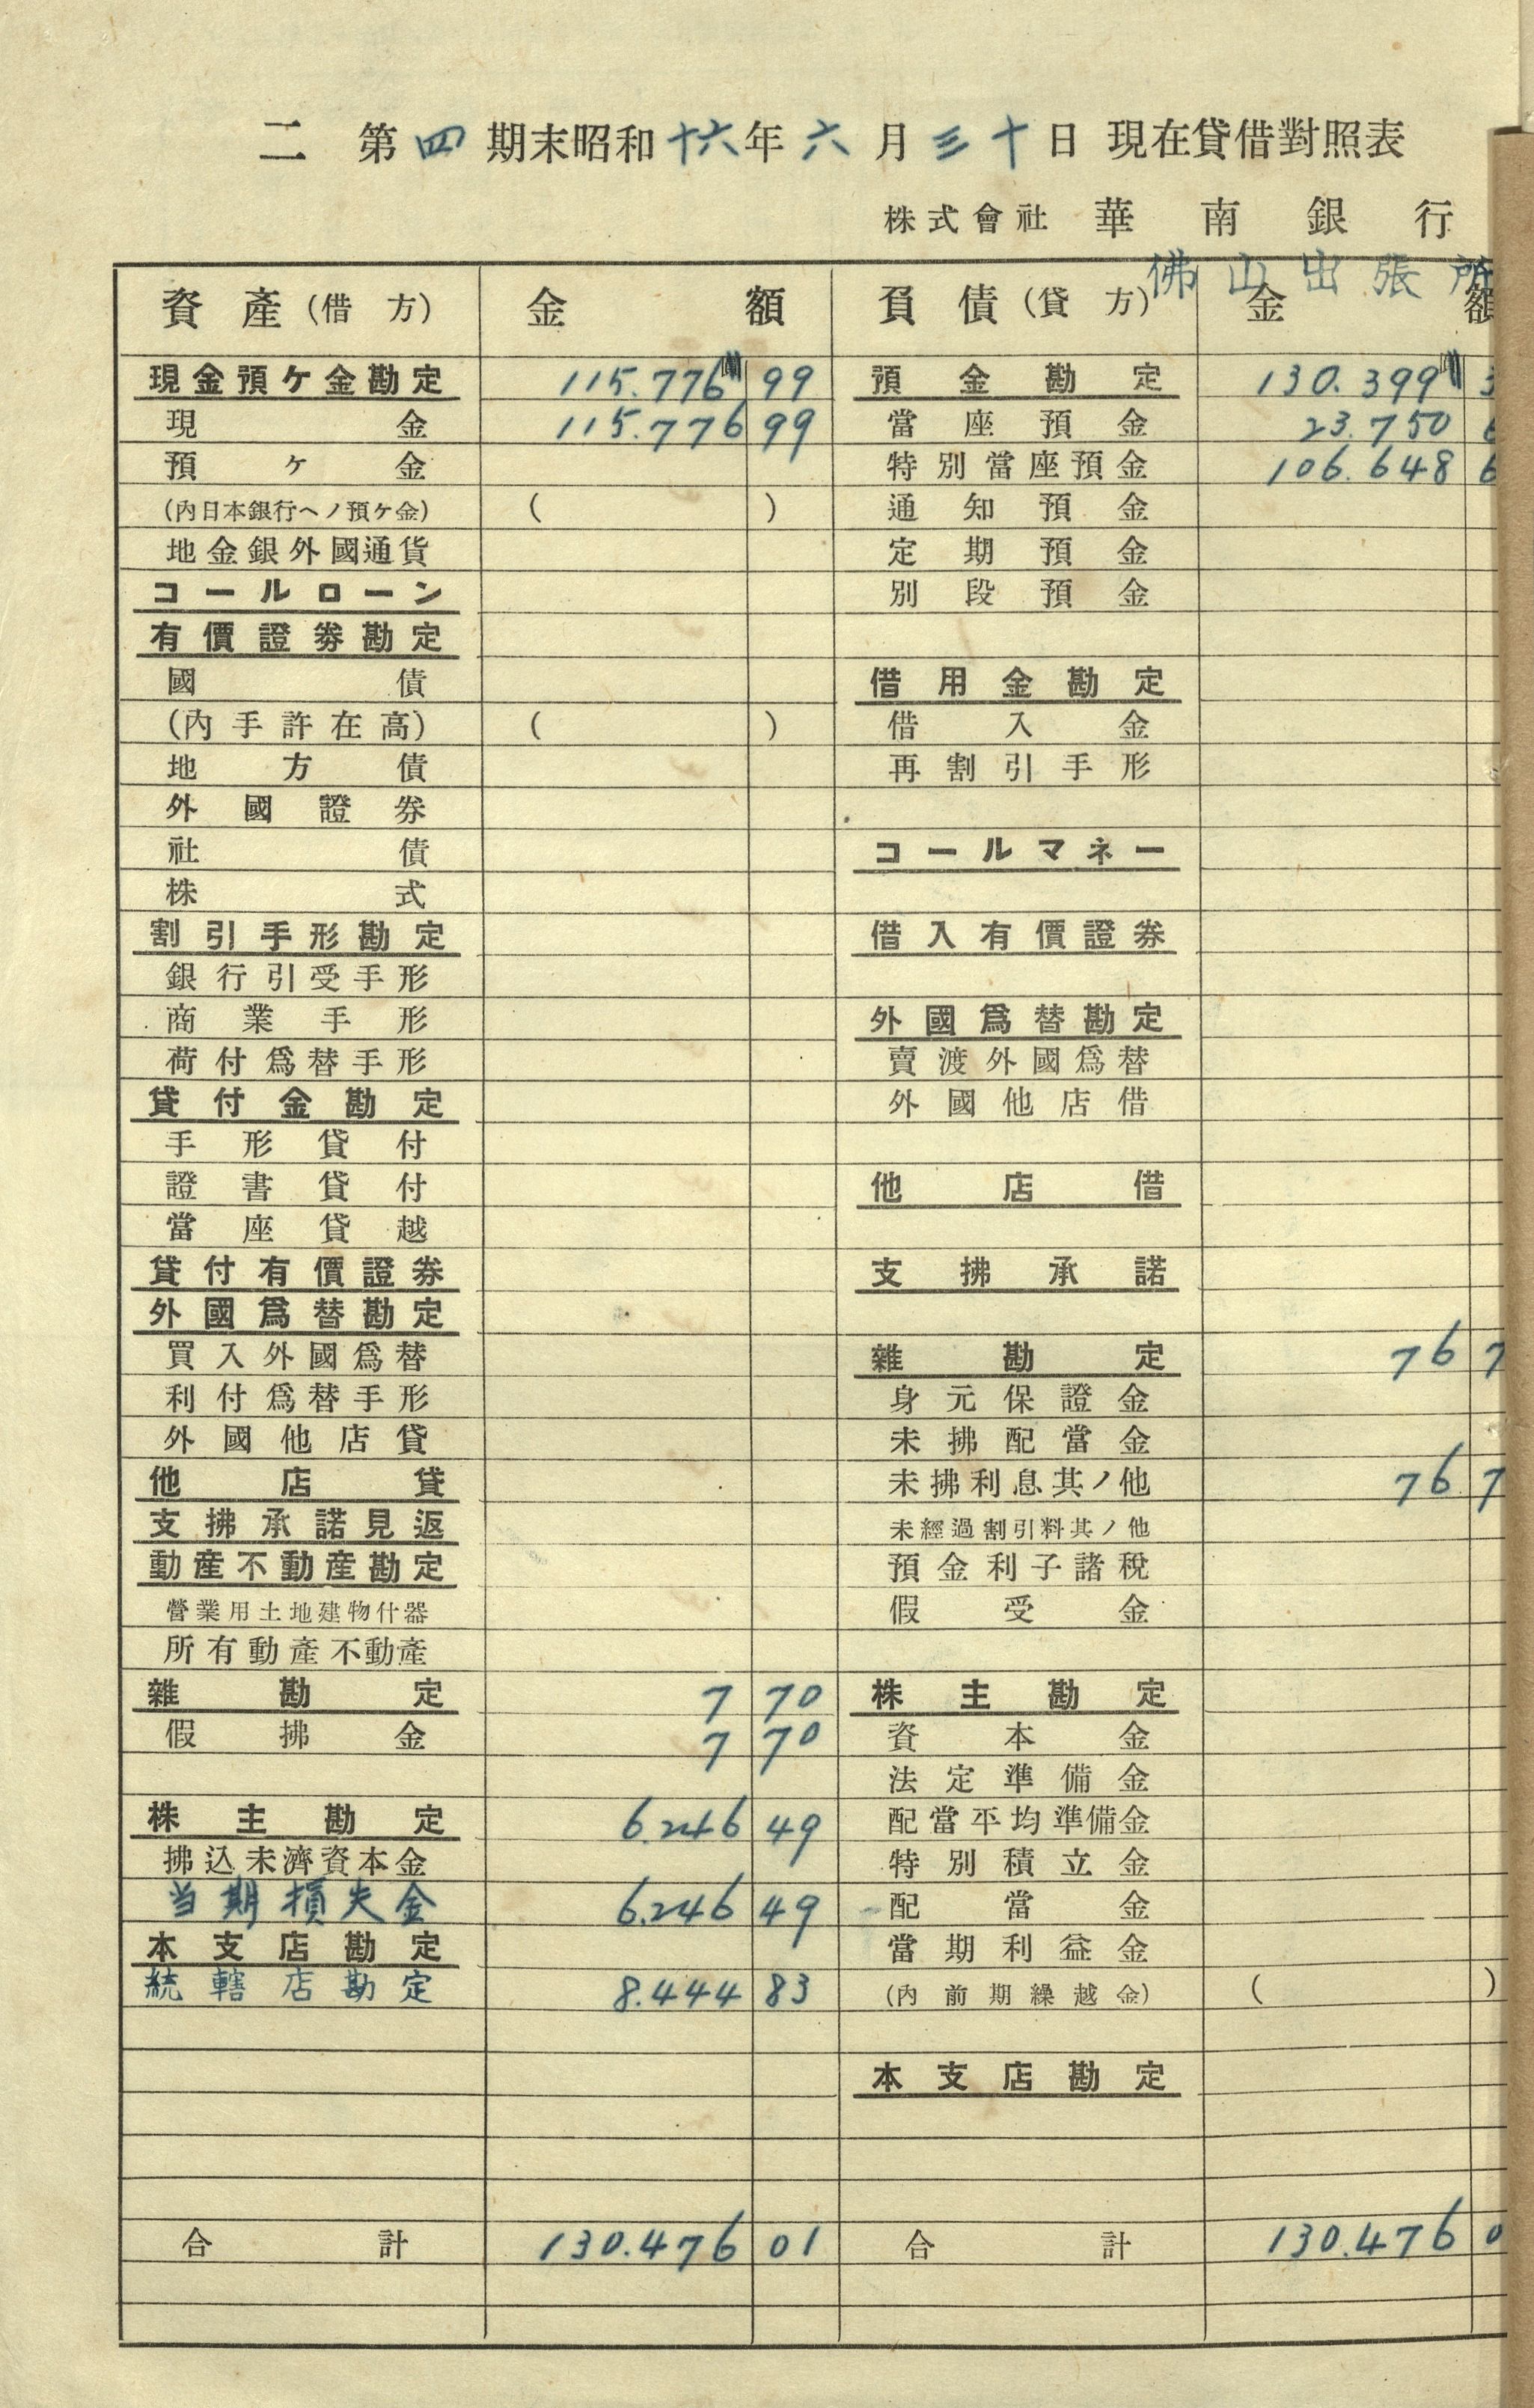 二 第四期末昭和十六年六月三十日 現在貸借對照表
株式會社 華南銀行
佛山出張所
資產(借方) 金額 負債(貸方) 金額
現金預ケ金勘定 115.776 99 預金勘定 130.399
現金 115.776 99 當座預金 23.750
預ケ金 特別當座預金 106.648
(內日本銀行ヘノ預ケ金) ( ) 通知預金
地金銀外國通貨 定期預金
コールローン 別段預金
有價證券勘定
國債 借用金勘定
(內手許在高) ( ) 借入金
地方債 再割引手形
外國證券
社債 コールマネー
株式
割引手形勘定 借入有價證券
銀行引受手形
商業手形 外國爲替勘定
荷付爲替手形 賣渡外國爲替
貸付金勘定 外國他店借
手形貸付
證書貸付 他店借
當座貸越
貸付有價證券 支拂承諾
外國爲替勘定
買入外國爲替 雜勘定 76
利付爲替手形 身元保證金
外國他店貸 未拂配當金
他店貸 未拂利息其ノ他 76
支拂承諾見返 未經過割引料其ノ他
動産不動産勘定 預金利子諸稅
營業用土地建物什器 假受金
所有動產不動產
雜勘定 7 70 株主勘定
假拂金 7 70 資本金
法定準備金
株主勘定 6.246 49 配當平均準備金
拂込未濟資本金 特別積立金
当期損失金 6.246 49 配當金
本支店勘定 當期利益金
統轄店勘定 8.444 83 (內前期繰越金) ( )
本支店勘定
合計 130.476 01 合計 130.476